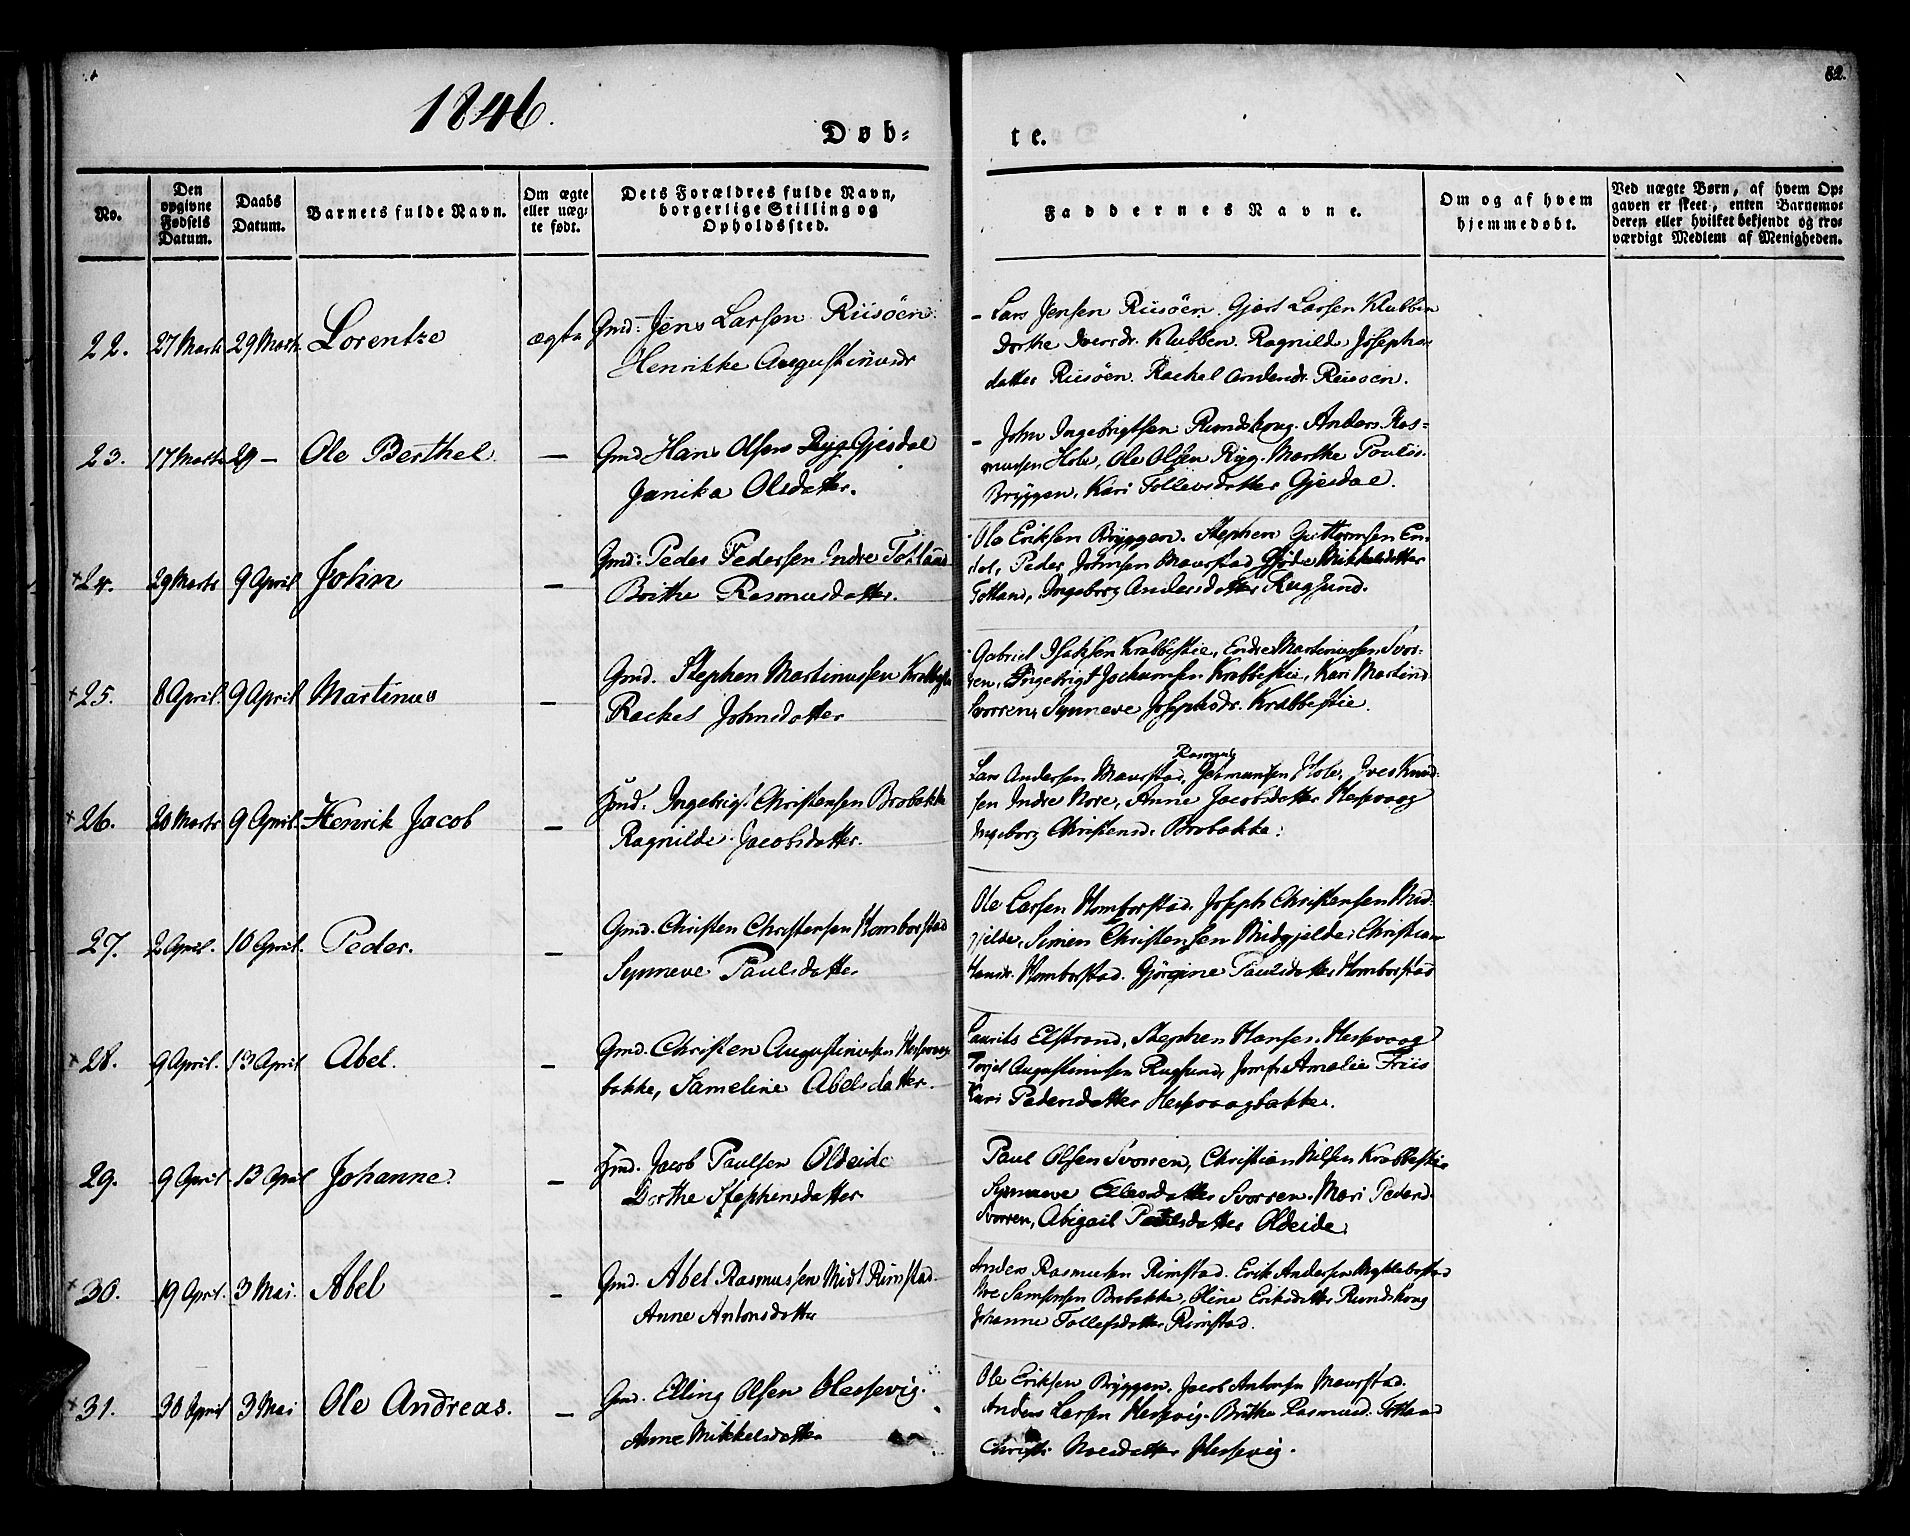 1846.
52.
Døb=
te.
No.
Den opgivne Fødsels Datum.
Daabs Datum.
Barnets fulde Navn.
Om ægte eller uæg= te født.
Dets Forældres fulde Navn, borgerlige Stilling og Opholdssted.
Faddernes Navne.
Om og af hvem hjemmedøbt.
Ved uægte Børn, af hvem Op= gaven er skeet, enten Barnemo= deren eller hvilket bekjendt og tro= værdigt Medlem af Menigheden.
22. 27 Marts 29 Marts. Lorentze ægte Gmd: Jens Larsen Riisöen.
Henrikke Augustinusdr
- Lars Jensen Riisöen. Gjert Larsen Klubben
Dorthe Iversdr. Klubben. Ragnilde Josephs=
datter Riisöen. Rachel Andersdr. Riisöen.
23. 17 Marts 29 - Ole Berthel. - Gmd Hans Olsen Ryg Gjesdal
Janika Olsdatter.
- John Ingebrigtsen Rundskoug. Anders Ras=
mussen Hole, Ole Olsen Ryg. Marthe Poulsd.
Bryggen, Kari Tollevsdatter Gjesdal.
+24. 29 Marts 9 April John - Gmd: Peder Pedersen Indre Totland
Brithe Rasmusdatter.
Ole Eriksen Bryggen. Stephen Guttormsen En=
dal, Peder Johnsen Maurstad, Gjöde Mikkelsdatter
Totland, Ingeborg Andersdatter Rugsund.
+25. 8 April. 9 April Martinus - Gmd. Stephen Martinussen Krabbestie
Rachel Johnsdatter
Gabriel Isaksen Krabbestie, Endre Martinussen Svor=
ren, Ingebrigt Jochumsen Krabbestie, Kari Martind
Svorren, Synneve Josephsdr. Krabbestie.
+26. 20 Marts 9 April. Henrik Jacob - Hmd. Ingebrigt Christensen Brobakke
Ragnilde Jacobsdatter.
Rasmus
Lars Andersen Maurstad, Jetmundsen Hole, Iver Knud=
sen Indre Nore, Anne Jacobsdatter Hessevaag
Ingeborg Christensd. Brobakke.
27. 2 April. 10 April. Peder. - Gmd. Christen Christensen Homborstad
Synneve Paulsdatter
Ole Larsen Homborstad. Joseph Christensen Mid=
gjelde, Simen Christensen Midgjelde, Christian
Hansdr. Homborstad. Gjörgine Paulsdatter Homborstad
+28. 9 April. 13 April Abel. - Gmd. Christen Augustinussen Hessevaag
bakke, Sameline Abelsdatter.
Laurits Elstrand, Stephen Hansen Hessevaag
Torjel Augustinusen Rugsund, Jomf. Amalie Friis
Kari Pedersdatter Hessevaagbakke.
29. 9 April. 13 April Johanne - Hmd. Jacob Paulsen Oldeide
Dorthe Stephensdatter
Paul Olsen Svorren, Christian Nilsen Krabbestie
Synneve Ellensdatter Svorren. Mari Pedersd.
Svorren, Abigail Paulsdatter Oldeide.
+30. 19 April. 3 Mai. Abel - Gmd. Abel Rasmussen Midt Rimstad.
Anne Antonsdatter
Anders Rasmusen Rimstad. Erik Andersen Myklebostad
Ive Samsonsen Brobakke, Oline Eriksdatter Rundskoug
Johanne Tollefsdatter Rimstad.
+31. 30 April 3 Mai Ole Andreas. - Gmd. Elling Olsen Hessevig.
Anne Mikkelsdatter
Ole Eriksen Bryggen. Jacob Antonsen Maurstad.
Anders Larsen Hessevig. Brithe Rasmusd. Totland
Christi Nilsdatter Hessevig.